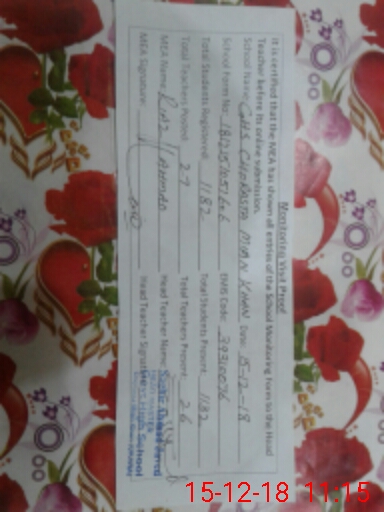 Monitoring Visit Proof
It is certified that the MEA has shown all entries of the School Monitoring Form to the Head
Teacher before its online submission.
School Name: GHS CHORASTA MIAN KHAN Date: 15-12-18
School Form No: EMIS Code:
Total Students Registered: 1182 Total Students Present: 1182
Total Teachers Posted: 27 Total Teachers Present: 26
MEA Name: Riaz Ahmad Head Teacher Name:
MEA Signature: Head Teacher Signature
High School
15-12-18 11:15